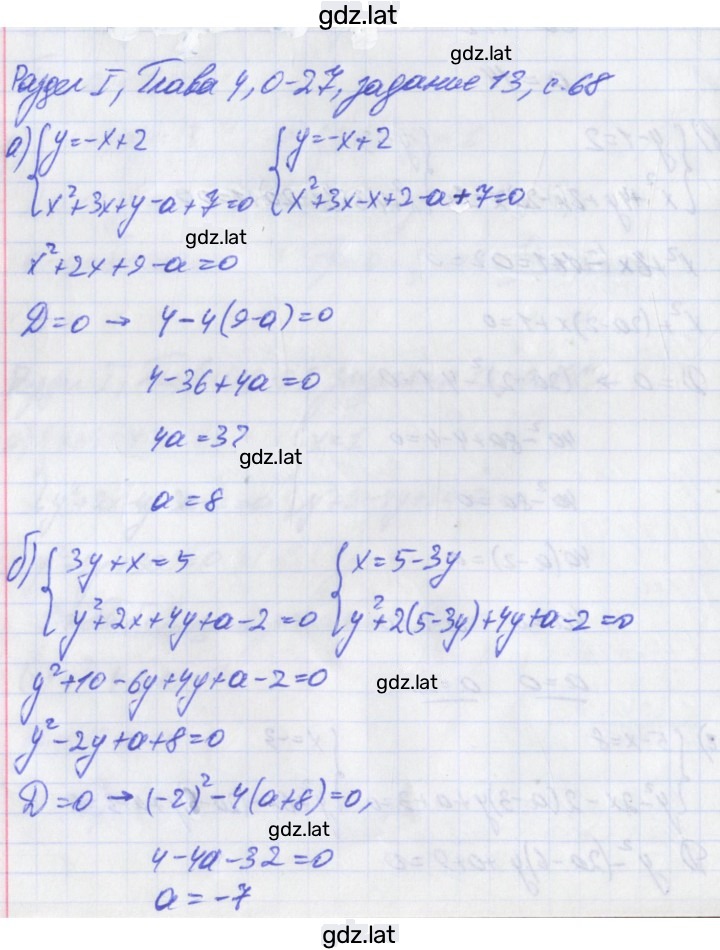 gdz.lat
gdz.lat
Раздел I, Глава 4, О-27, задание 13, с.68
а) { y=-x+2 { y=-x+2
x²+3x+y-a+7=0 x²+3x-x+2-a+7=0
gdz.lat
x²+2x+9-a=0
D=0 → 4-4(9-a)=0
4-36+4a=0
4a=32
gdz.lat
a=8
б) { 3y+x=5 { x=5-3y
y²+2x+4y+a-2=0 y²+2(5-3y)+4y+a-2=0
y²+10-6y+4y+a-2=0
gdz.lat
y²-2y+a+8=0
D=0 → (-2)²-4(a+8)=0,
gdz.lat
4-4a-32=0
a=-7
gdz.lat